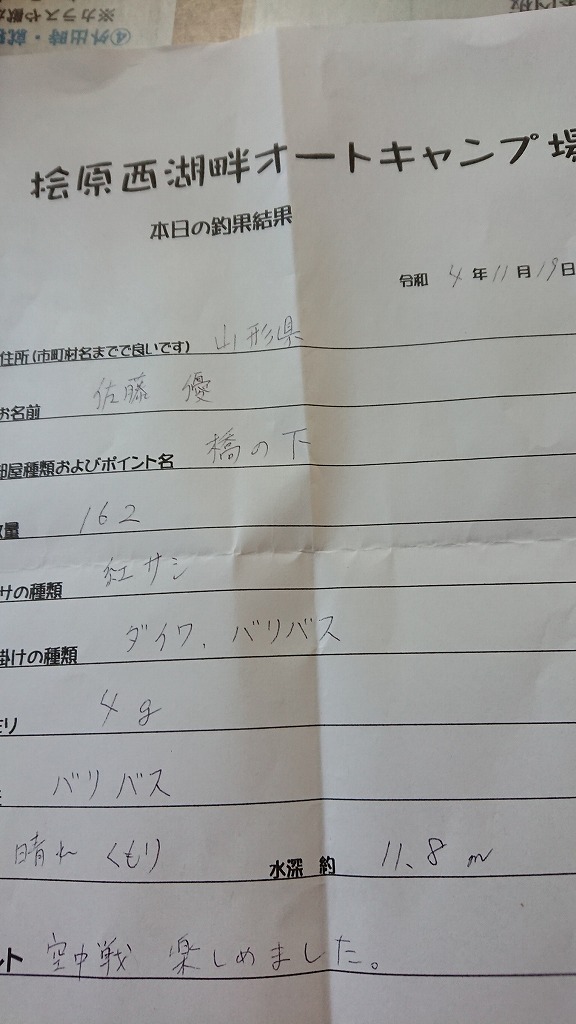 ④外出時・就
※カラスや敵
桧原西湖畔オートキャンプ場
本日の釣果結果
令和 4年11月19日
住所(市町村名までで良いです) 山形県
お名前 佐藤 優
部屋種類およびポイント名 橋の下
数量 162
サの種類 紅サシ
掛けの種類 ダイワ、バリバス
モリ 4g
バリバス
晴れ くもり 水深 約 11.8 m
ント 空中戦 楽しめました。